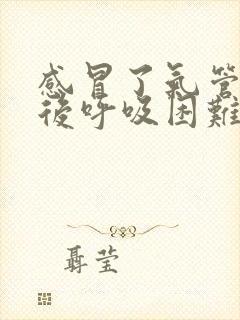 感冒了氣管
後呼吸困難
聶莹